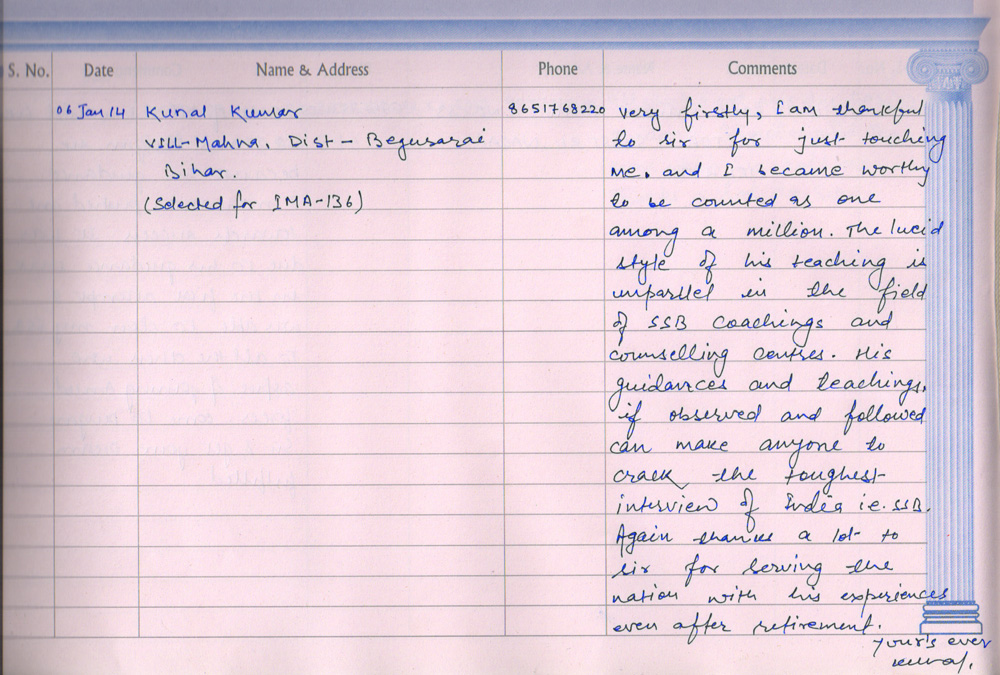 S. No. Date Name & Address Phone Comments
06 Jan 14 Kunal Kumar 8651768220 very firstly, I am thankful
VILL-Mahna, Dist - Begusarai to sir for just touching
Bihar. me, and I became worthy
(Selected for IMA-136) to be counted as one
among a million. The lucid
style of his teaching is
unparllel in the field
of SSB coachings and
counselling centres. His
guidances and teachings,
if observed and followed
can make anyone to
crack the toughest
interview of India i.e. SSB.
Again thanks a lot to
sir for serving the
nation with his experiences
even after retirement.
your's ever
kunal.